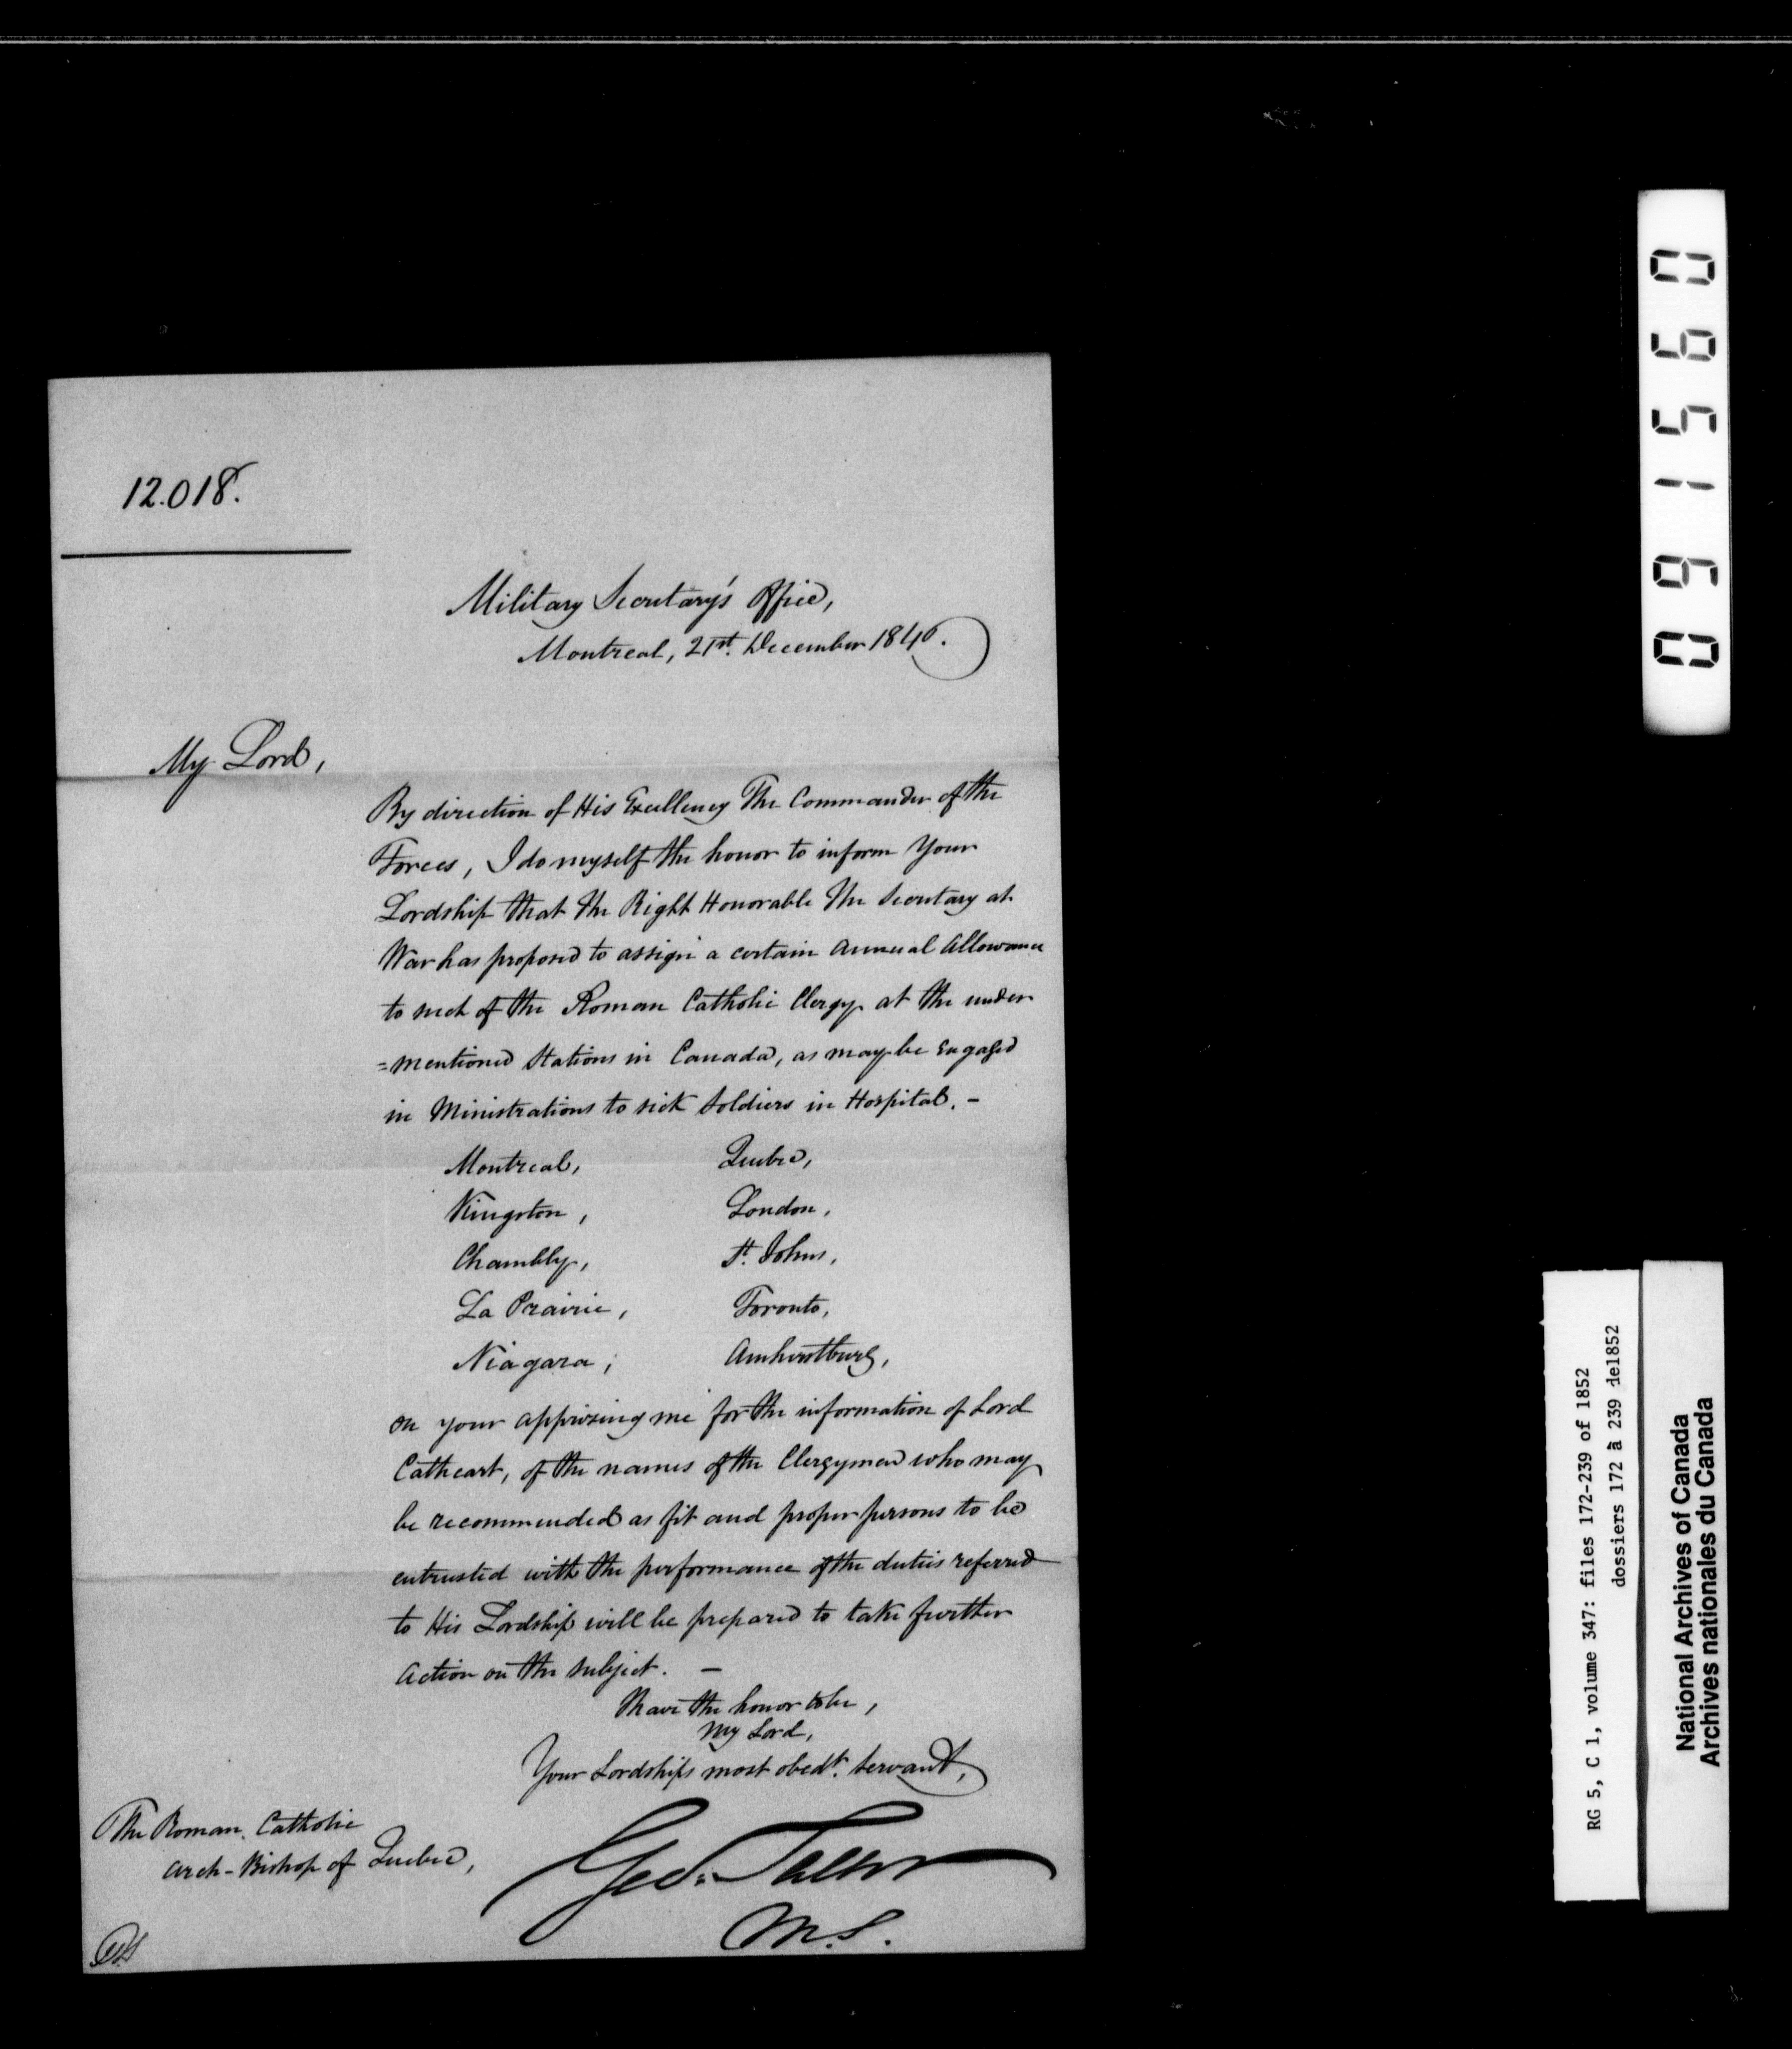 12.018.
Military Secretary's Office,
Montreal, 21st. December 1846.
My Lord,
By direction of His Excellency The Commander of the
Forces, I do myself the honor to inform Your
Lordship that the Right Honorable The Secretary at
War has proposed to assign a certain Annual Allowance
to such of the Roman Catholic Clergy at the under
=mentioned Stations in Canada, as may be Engaged
in Ministrations to sick Soldiers in Hospital. -
Montreal, Quebec,
Kingston, London,
Chambly, St. Johns,
La Prairie, Toronto,
Niagara; Amherstburg,
on your apprizing me for the information of Lord
Cathcart, of the names of the Clergymen who may
be recommended as fit and proper persons to be
entrusted with the performance of the duties referred
to His Lordship will be prepared to take further
Action on the subject. —
I have the honor to be,
My Lord,
Your Lordships most obedt. servant,
The Roman Catholic
Arch-Bishop of Quebec,
Geo: Talbot
M.S.
091560
RG 5, C 1, volume 347: files 172-239 of 1852
dossiers 172 à 239 de1852
National Archives of Canada
Archives nationales du Canada